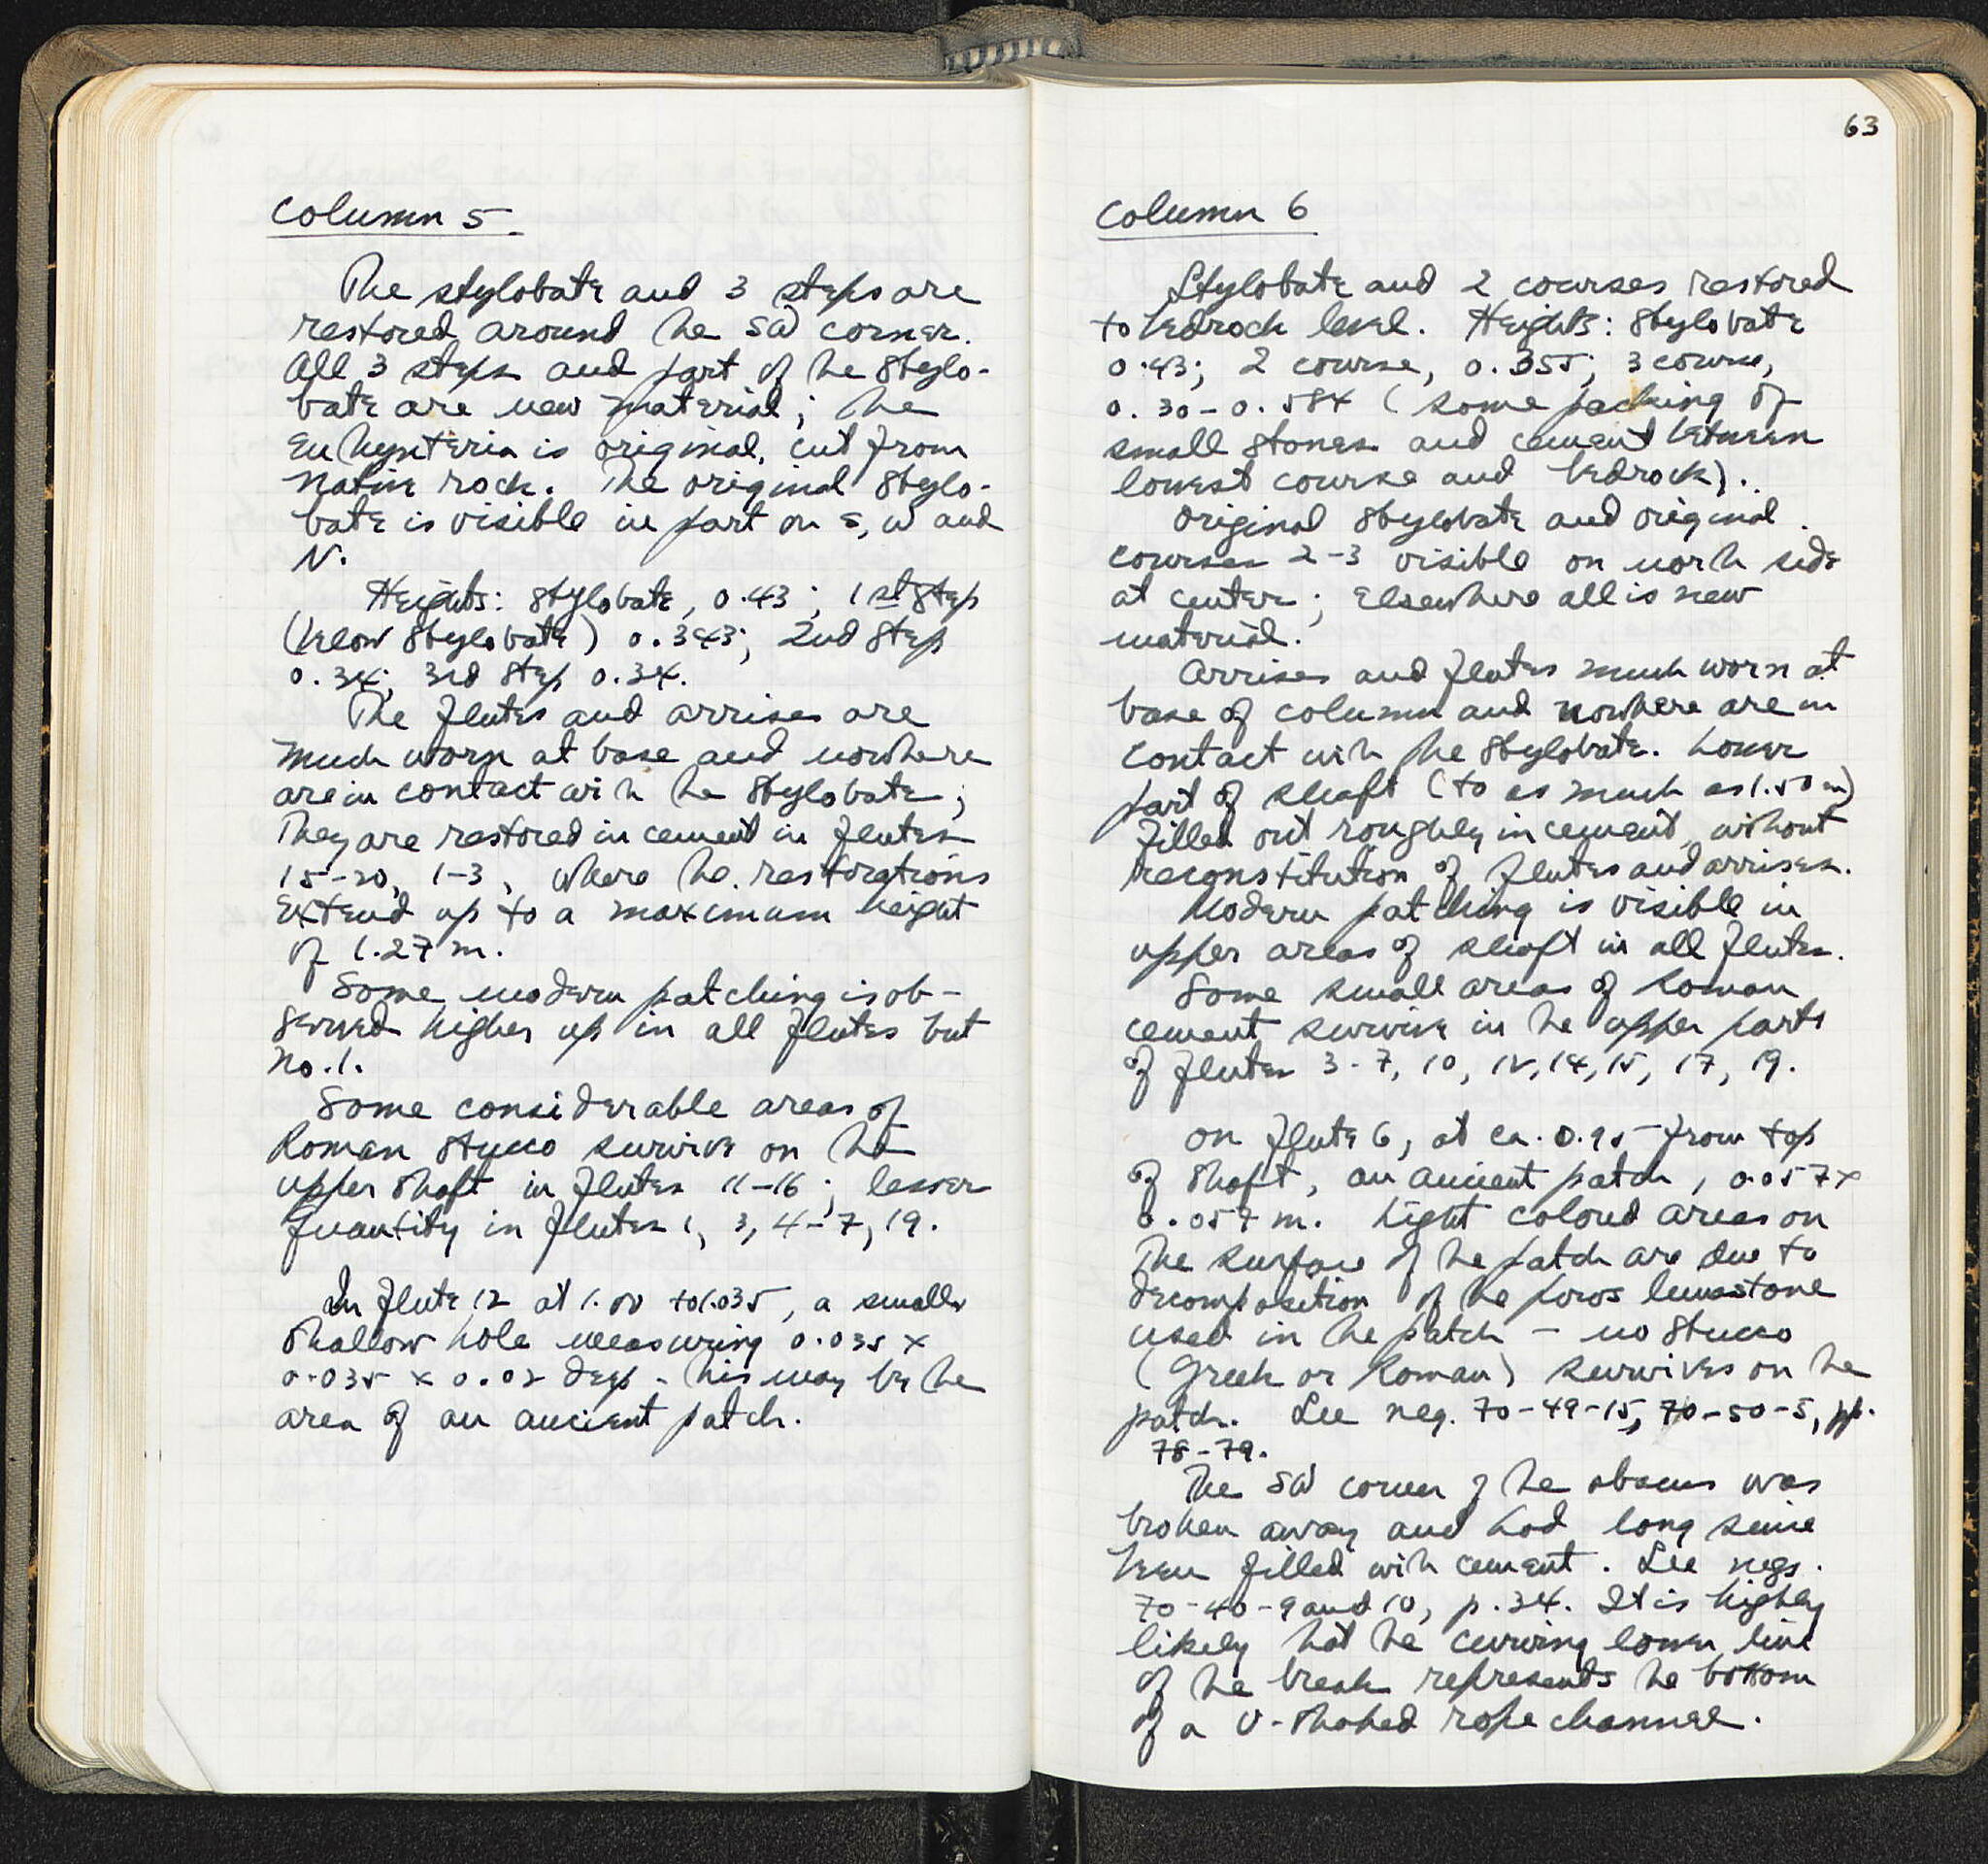 Column 5
The stylobate and 3 steps are
restored around the SW corner.
All 3 steps and part of the stylo-
bate are new material; the
euthynteria is original, cut from
native rock. The original stylo-
bate is visible in part on S, W and
N.
Heights: stylobate, 0.43; 1st step
(below stylobate) 0.343; 2nd step
0.34; 3rd step 0.34.
The flutes and arrises are
much worn at base and nowhere
are in contact with the stylobate;
They are restored in cement in flutes
15-20, 1-3, where the restorations
extend up to a maximum height
of 1.27 m.
Some modern patching is ob-
served higher up in all flutes but
no. 1.
Some considerable areas of
Roman stucco survive on the
upper shaft in flutes 11-16; lesser
quantity in flutes 1, 3, 4-7, 19.
In flute 12 at 1.00 to 1.035, a small
shallow hole measuring 0.035 x
0.035 x 0.02 deep - this may be the
area of an ancient patch.
63
Column 6
Stylobate and 2 courses restored
to bedrock level. Heights: stylobate
0.43; 2 course, 0.355; 3 course,
0.30-0.584 (some packing of
small stones and cement between
lowest course and bedrock).
Original stylobate and original
courses 2-3 visible on north side
at center; elsewhere all is new
material.
Arrises and flutes much worn at
base of column and nowhere are in
contact with the stylobate. Lower
part of shaft (to as much as 1.50 m)
filled out roughly in cement, without
reconstitution of flutes and arrises.
Modern patching is visible in
upper areas of shaft in all flutes.
Some small areas of Roman
cement survive in the upper parts
of flutes 3-7, 10, 12, 14, 15, 17, 19.
On flute 6, at ca. 0.95 from top
of shaft, an ancient patch, 0.057 x
0.057 m. Light colored areas on
the surface of the patch are due to
decomposition of the poros limestone
used in the patch - no stucco
(Greek or Roman) survives on the
patch. See neg. 70-49-15, 70-50-5, pp.
78-79.
The SW corner of the abacus was
broken away and had long since
been filled with cement. See negs.
70-40-9 and 10, p. 34. It is highly
likely that the curving lower line
of the break represents the bottom
of a U-shaped rope channel.